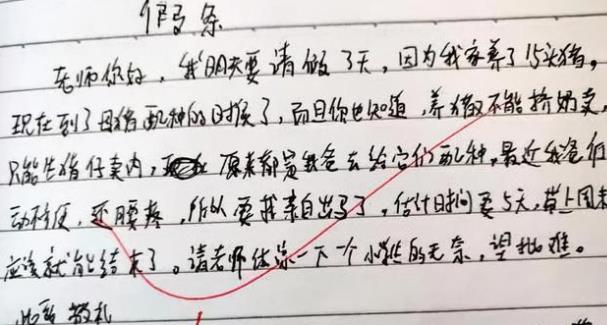 假条
老师你好，我明天要请假3天，因为我家养了15头猪，
现在到了母猪配种的时候了，而且你也知道，养猪又不能挤奶卖，
只能生猪仔卖肉，原来都是我爸去给它们配种，最近我爸行
动不便，还腰疼，所以要我亲自出马了，估计时间要5天，算上周末
应该就能结束了。请老师体谅一下一个小燃的无奈，望批准。
此致 敬礼